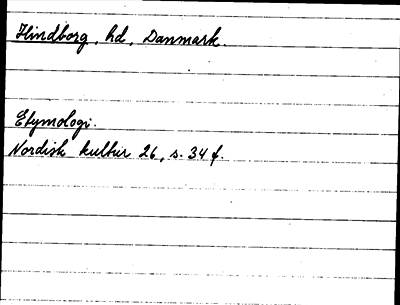 Hindborg, hd, Danmark.
Etymologi.
Nordisk kultur 26, s. 34 f.